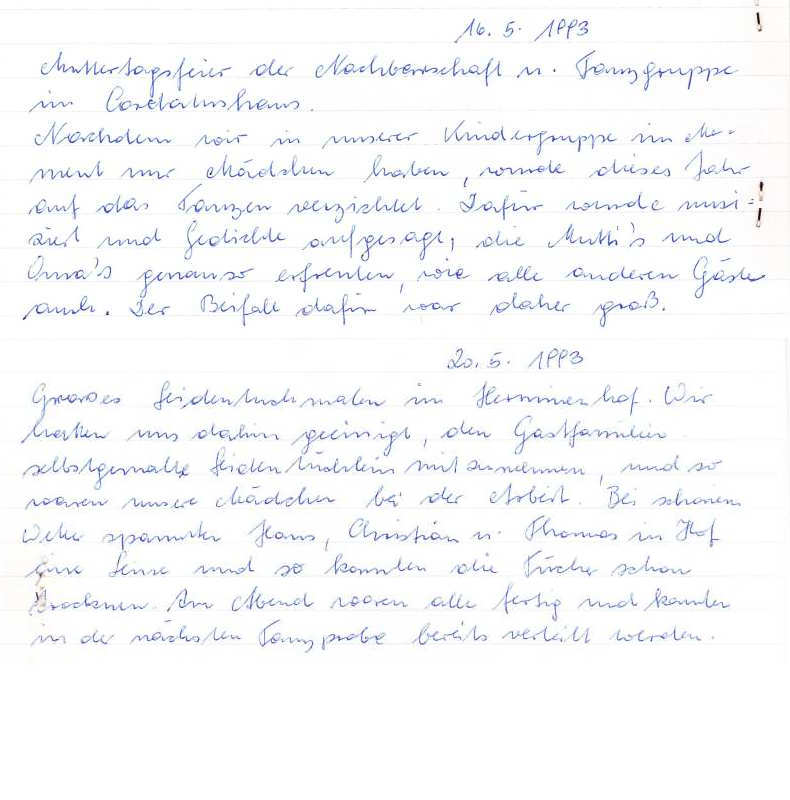 16. 5. 1993
Muttertagsfeier der Nachbarschaft u. Tanzgruppe
im
Nachdem wir in unserer Kindergruppe im Mo-
ment nur Mädchen haben, wurde dieses Jahr
auf das Tanzen verzichtet. Dafür wurde musi=
ziert und Gedichte aufgesagt, die Mutti's und
Oma's genauso erfreuten, wie alle anderen Gäste
auch. Der Beifall dafür war daher groß.
20. 5. 1993
Grosses Seidentuchmalen im Herminenhof. Wir
hatten uns dahin geeinigt, den Gastfamilien
selbstgemalte Seidentüchlein mitzunehmen, und so
waren unsere Mädchen bei der Arbeit. Bei schönem
Wetter spannten Hans, Christian u. Thomas im Hof
eine Leine und so konnten die Tücher schon
trocknen. Am Abend waren alle fertig und konnten
in der nächsten Tanzprobe bereits verteilt werden.